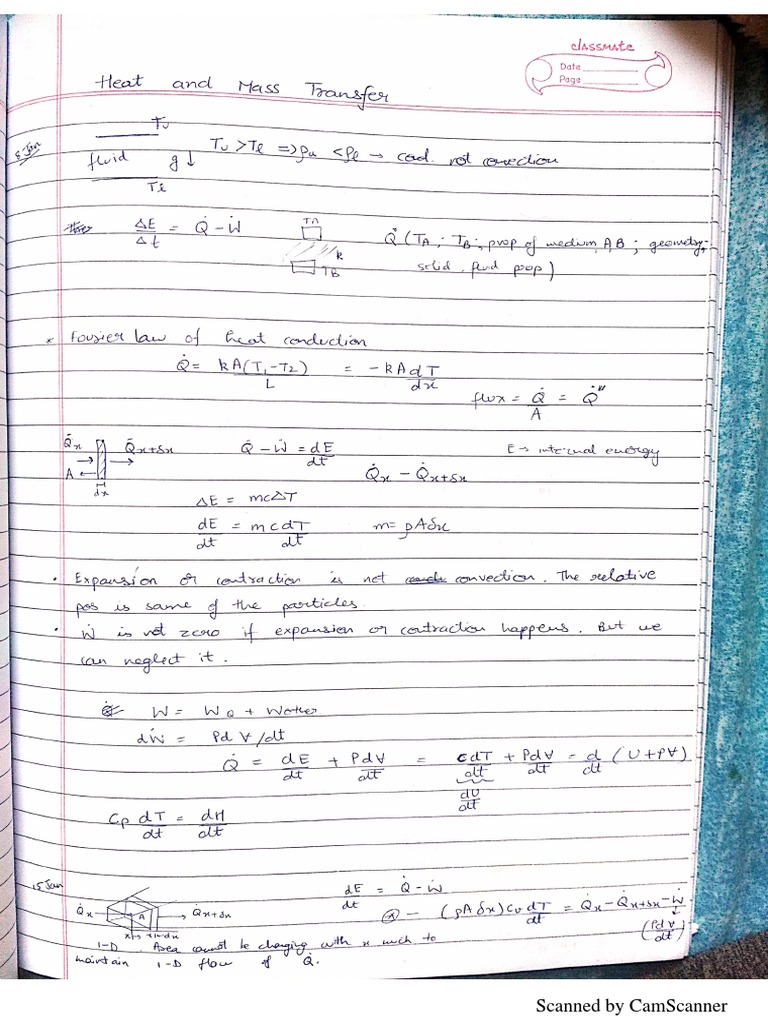 classmate
Date
Page
Heat and Mass Transfer
8 Jan
Tu
fluid g↓ Tu > Tl ⇒ ρu < ρl → cond. not convection
Tl
ΔE/Δt = Q̇ - Ẇ
TA
k
TB
Q̇ (TA; TB; prop of medium, A,B; geometry;
solid, fluid prop)
* Fourier law of heat conduction
Q̇ = kA(T1-T2)/L = -kA dT/dx
flux = Q̇/A = Q̇"
Q̇x Q̇x+δx Q̇ - Ẇ = dE/dt E → internal energy
A dx Q̇x - Q̇x+δx
ΔE = mcΔT
dE/dt = mc dT/dt m = ρAδx
• Expansion or contraction is not convection. The relative
pos is same of the particles.
• Ẇ is not zero if expansion or contraction happens. But we
can neglect it.
W = WQ + Wother
dẆ = Pd∀/dt
Q̇ = dE/dt + Pd∀/dt = cdT/dt + Pd∀/dt = d/dt (U+P∀)
dU/dt
Cp dT/dt = dH/dt
15 Jan
dE/dt = Q̇ - Ẇ
Q̇x A Q̇x+δx
x x+dx
(ρAδx)Cv dT/dt = Q̇x - Q̇x+δx - Ẇ
(Pd∀/dt)
1-D. Area cannot be changing with x much to
maintain 1-D flow of Q̇.
Scanned by CamScanner